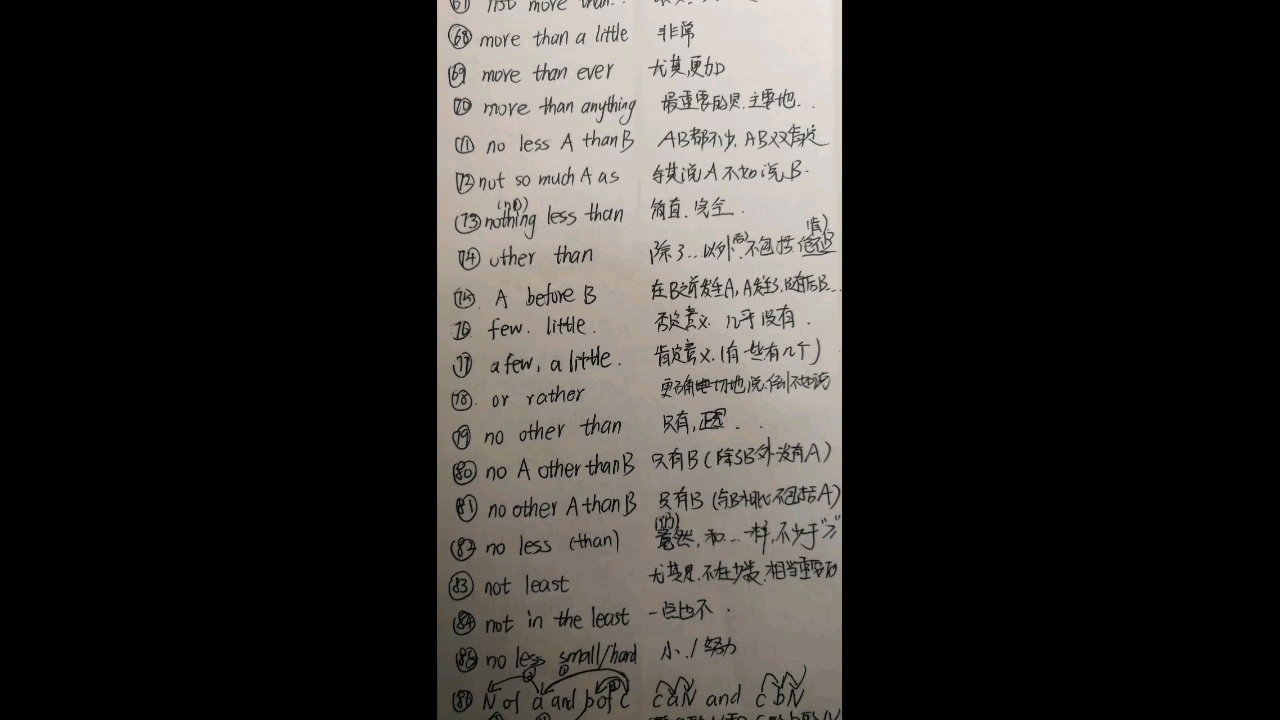 67 not more than..
68 more than a little 非常
69 more than ever 尤其,更加
70 more than anything 最重要的是.主要地..
71 no less A than B AB都不少,AB双肯定
72 not so much A as 与其说A不如说B.
(no)
73 nothing less than 简直.完全.
(肯)
74 other than 除了...以外(否).不包括
75 A before B 在B之前发生A,A发生了,B
76 few. little. 否定意义.几乎没有.
77 a few, a little. 肯定意义.(有一些有几个)
78 or rather 更确切地说.倒不如说
79 no other than 只有,正是..
80 no A other than B 只有B(除了B外没有A)
81 no other A than B 只有B(与B相比不包括A)
82 no less (than) 竟然,和...一样,不少于"≥"
83 not least 尤其是.不在少数.相当重要的
84 not in the least 一点也不.
85 no less small/hard 小./努力
86 N of a and b of C CaN and CbN